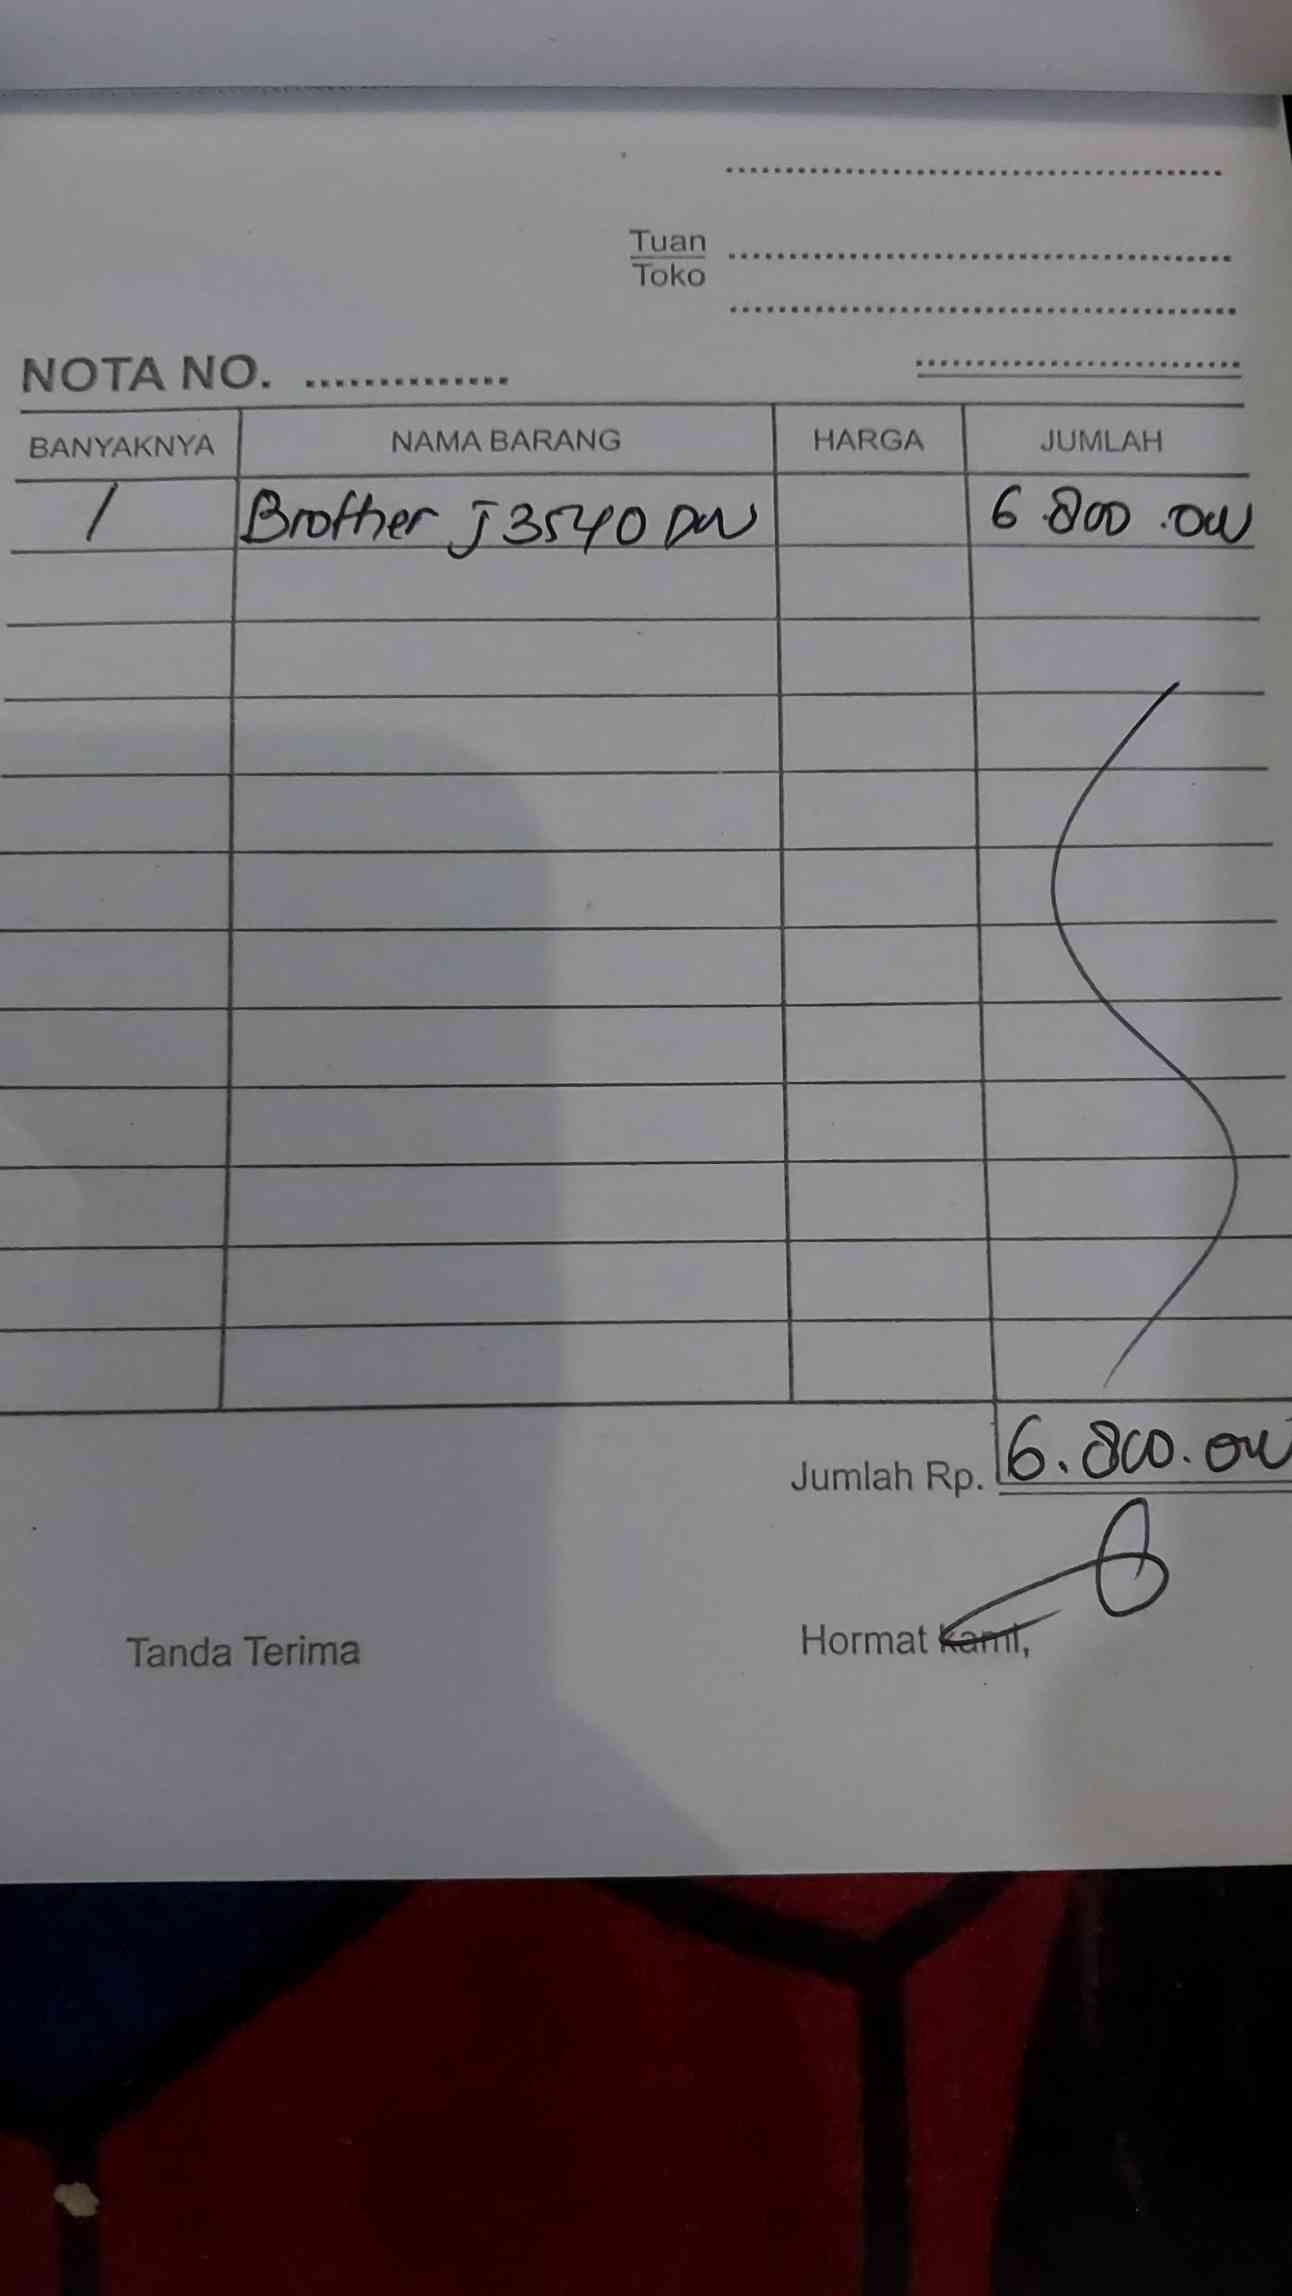 Tuan
Toko
NOTA NO.
BANYAKNYA NAMA BARANG HARGA JUMLAH
1 Brother J3540 DW 6.800.000
Jumlah Rp. 6.800.000
Tanda Terima Hormat kami,